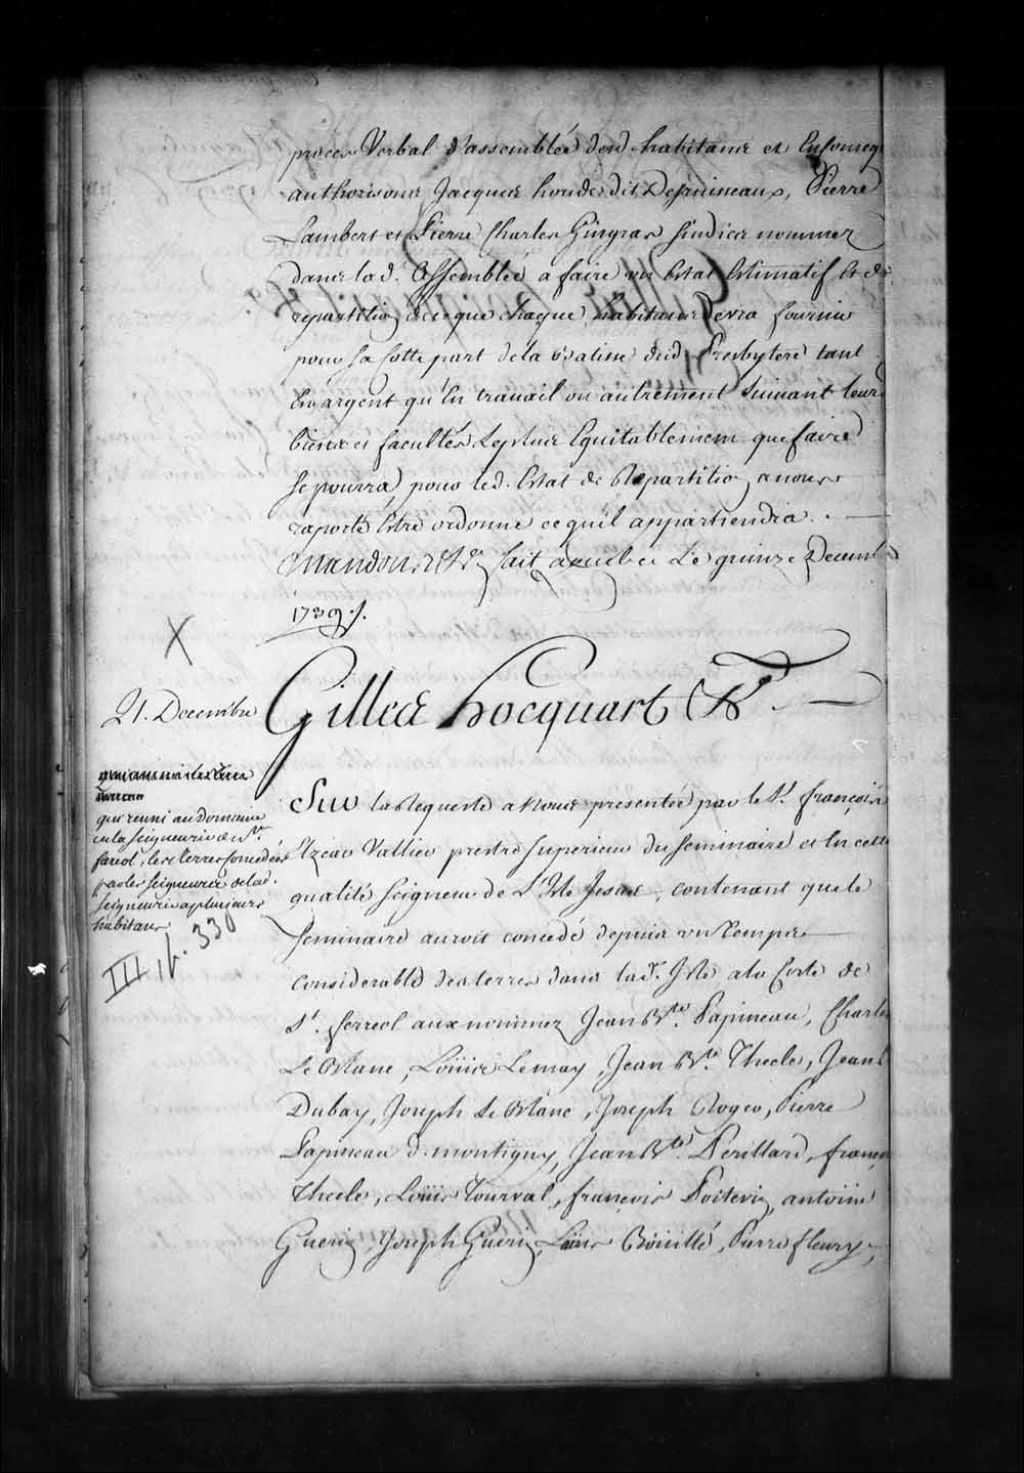 proces Verbal d'assemblée desd. habitans et En conseq
authorisons Jacques houde dit Desruineaux, Pierre
Lambert et Pierre Charles Gingras sindics nommez
dans lad. Assemblée a faire un Estat Estimatif Et de
repartition de ce que chaque habitans devra fournir
pour sa cotte part de la batisse dud. Presbytere tant
En argent qu'En travail ou autrement suivant leurs
biens et facultés Le plus Equitablement que faire
se pourra, pour led. Estat de Repartition a nous
raporté Estre ordonné ce qu'il appartiendra. —
Mandons &c. fait a quebec Le quinze Decemb
1739 ./.
X
21. Decembre
Gilles hocquart &c. —
qui reuni au Domaine
de la seigneurie de St.
fereol, les terres concedées
par les seigneurs de lad.
seigneurie a plusieurs
habitans
III f. 330
Sur la Requeste a Nous presentée par le Sr. françois
Elzear Vallier prestre superieur du seminaire et En cette
qualité seigneur de L'Isle Jesus, contenant que le
seminaire auroit concedé depuis un temps
considerable des terres dans lad. Isle a la Coste de
St. ferreol aux nommez Jean Bte. Papineau, Charles
Le Blanc, Loüis Lemay, Jean Bte. Theole, Jean
Dubay, Joseph Le Blanc, Joseph Roger, Pierre
Papineau d. montigny, Jean Bte. Perillard, françois
Theole, Loüis Tourval, françois Poitevin, antoine
Guerin, Joseph Guerin, Loüis Boüillé, Pierre fleury,